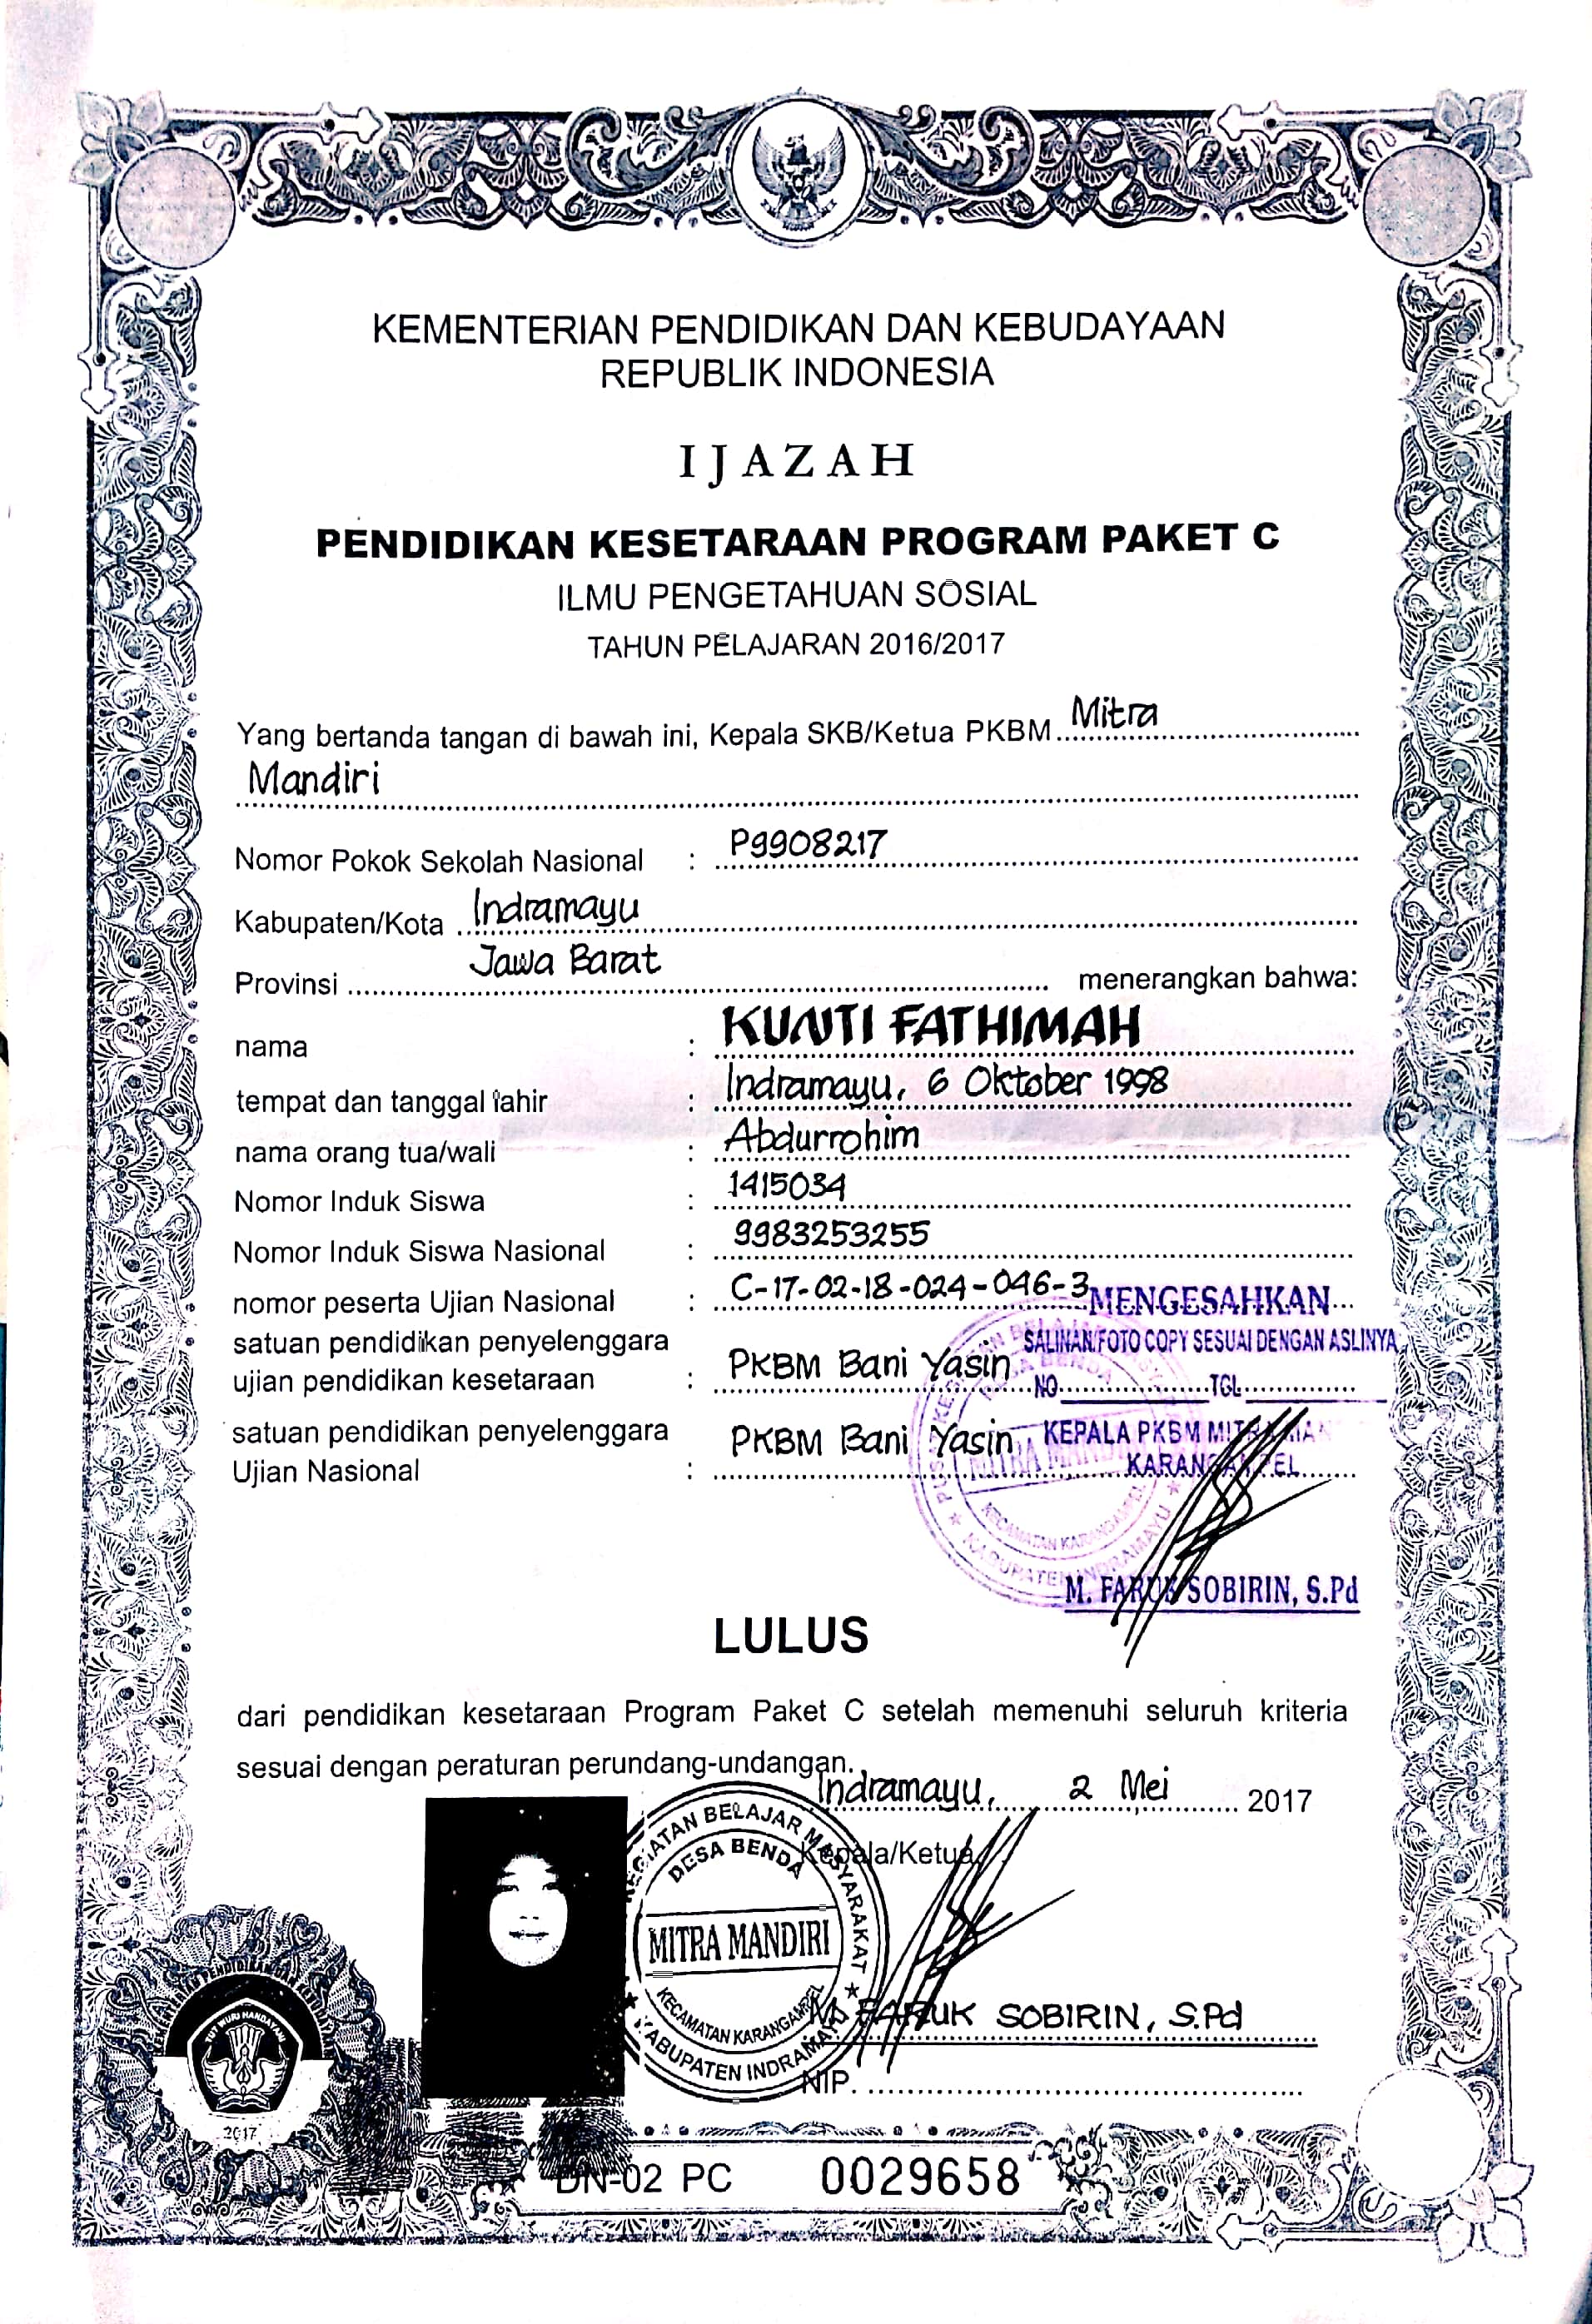 KEMENTERIAN PENDIDIKAN DAN KEBUDAYAAN
REPUBLIK INDONESIA
IJAZAH
PENDIDIKAN KESETARAAN PROGRAM PAKET C
ILMU PENGETAHUAN SOSIAL
TAHUN PELAJARAN 2016/2017
Yang bertanda tangan di bawah ini, Kepala SKB/Ketua PKBM Mitra
Mandiri
Nomor Pokok Sekolah Nasional : P9908217
Kabupaten/Kota Indramayu
Provinsi Jawa Barat menerangkan bahwa:
nama : KUNTI FATHIMAH
tempat dan tanggal lahir : Indramayu, 6 Oktober 1998
nama orang tua/wali : Abdurrohim
Nomor Induk Siswa : 1415034
Nomor Induk Siswa Nasional : 9983253255
nomor peserta Ujian Nasional : C-17-02-18-024-046-3
MENGESAHKAN
SALINAN/FOTO COPY SESUAI DENGAN ASLINYA
satuan pendidikan penyelenggara
ujian pendidikan kesetaraan : PKBM Bani Yasin
NO. TGL.
satuan pendidikan penyelenggara
Ujian Nasional : PKBM Bani Yasin
KEPALA PKBM MITRA
KARANGAMPEL
MITRA MANDIRI
KECAMATAN KARANGAMPEL
KABUPATEN INDRAMAYU
M. FARUK SOBIRIN, S.Pd
LULUS
dari pendidikan kesetaraan Program Paket C setelah memenuhi seluruh kriteria
sesuai dengan peraturan perundang-undangan.
Indramayu, 2 Mei 2017
Kepala/Ketua
KEGIATAN BELAJAR MASYARAKAT
DESA BENDA
MITRA MANDIRI
KECAMATAN KARANGAMPEL
KABUPATEN INDRAMAYU
M. FARUK SOBIRIN, S.Pd
NIP.
TUT WURI HANDAYANI
2017
DN-02 PC 0029658